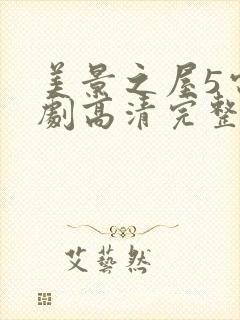 美景之屋5
劇高清完整
艾藝然